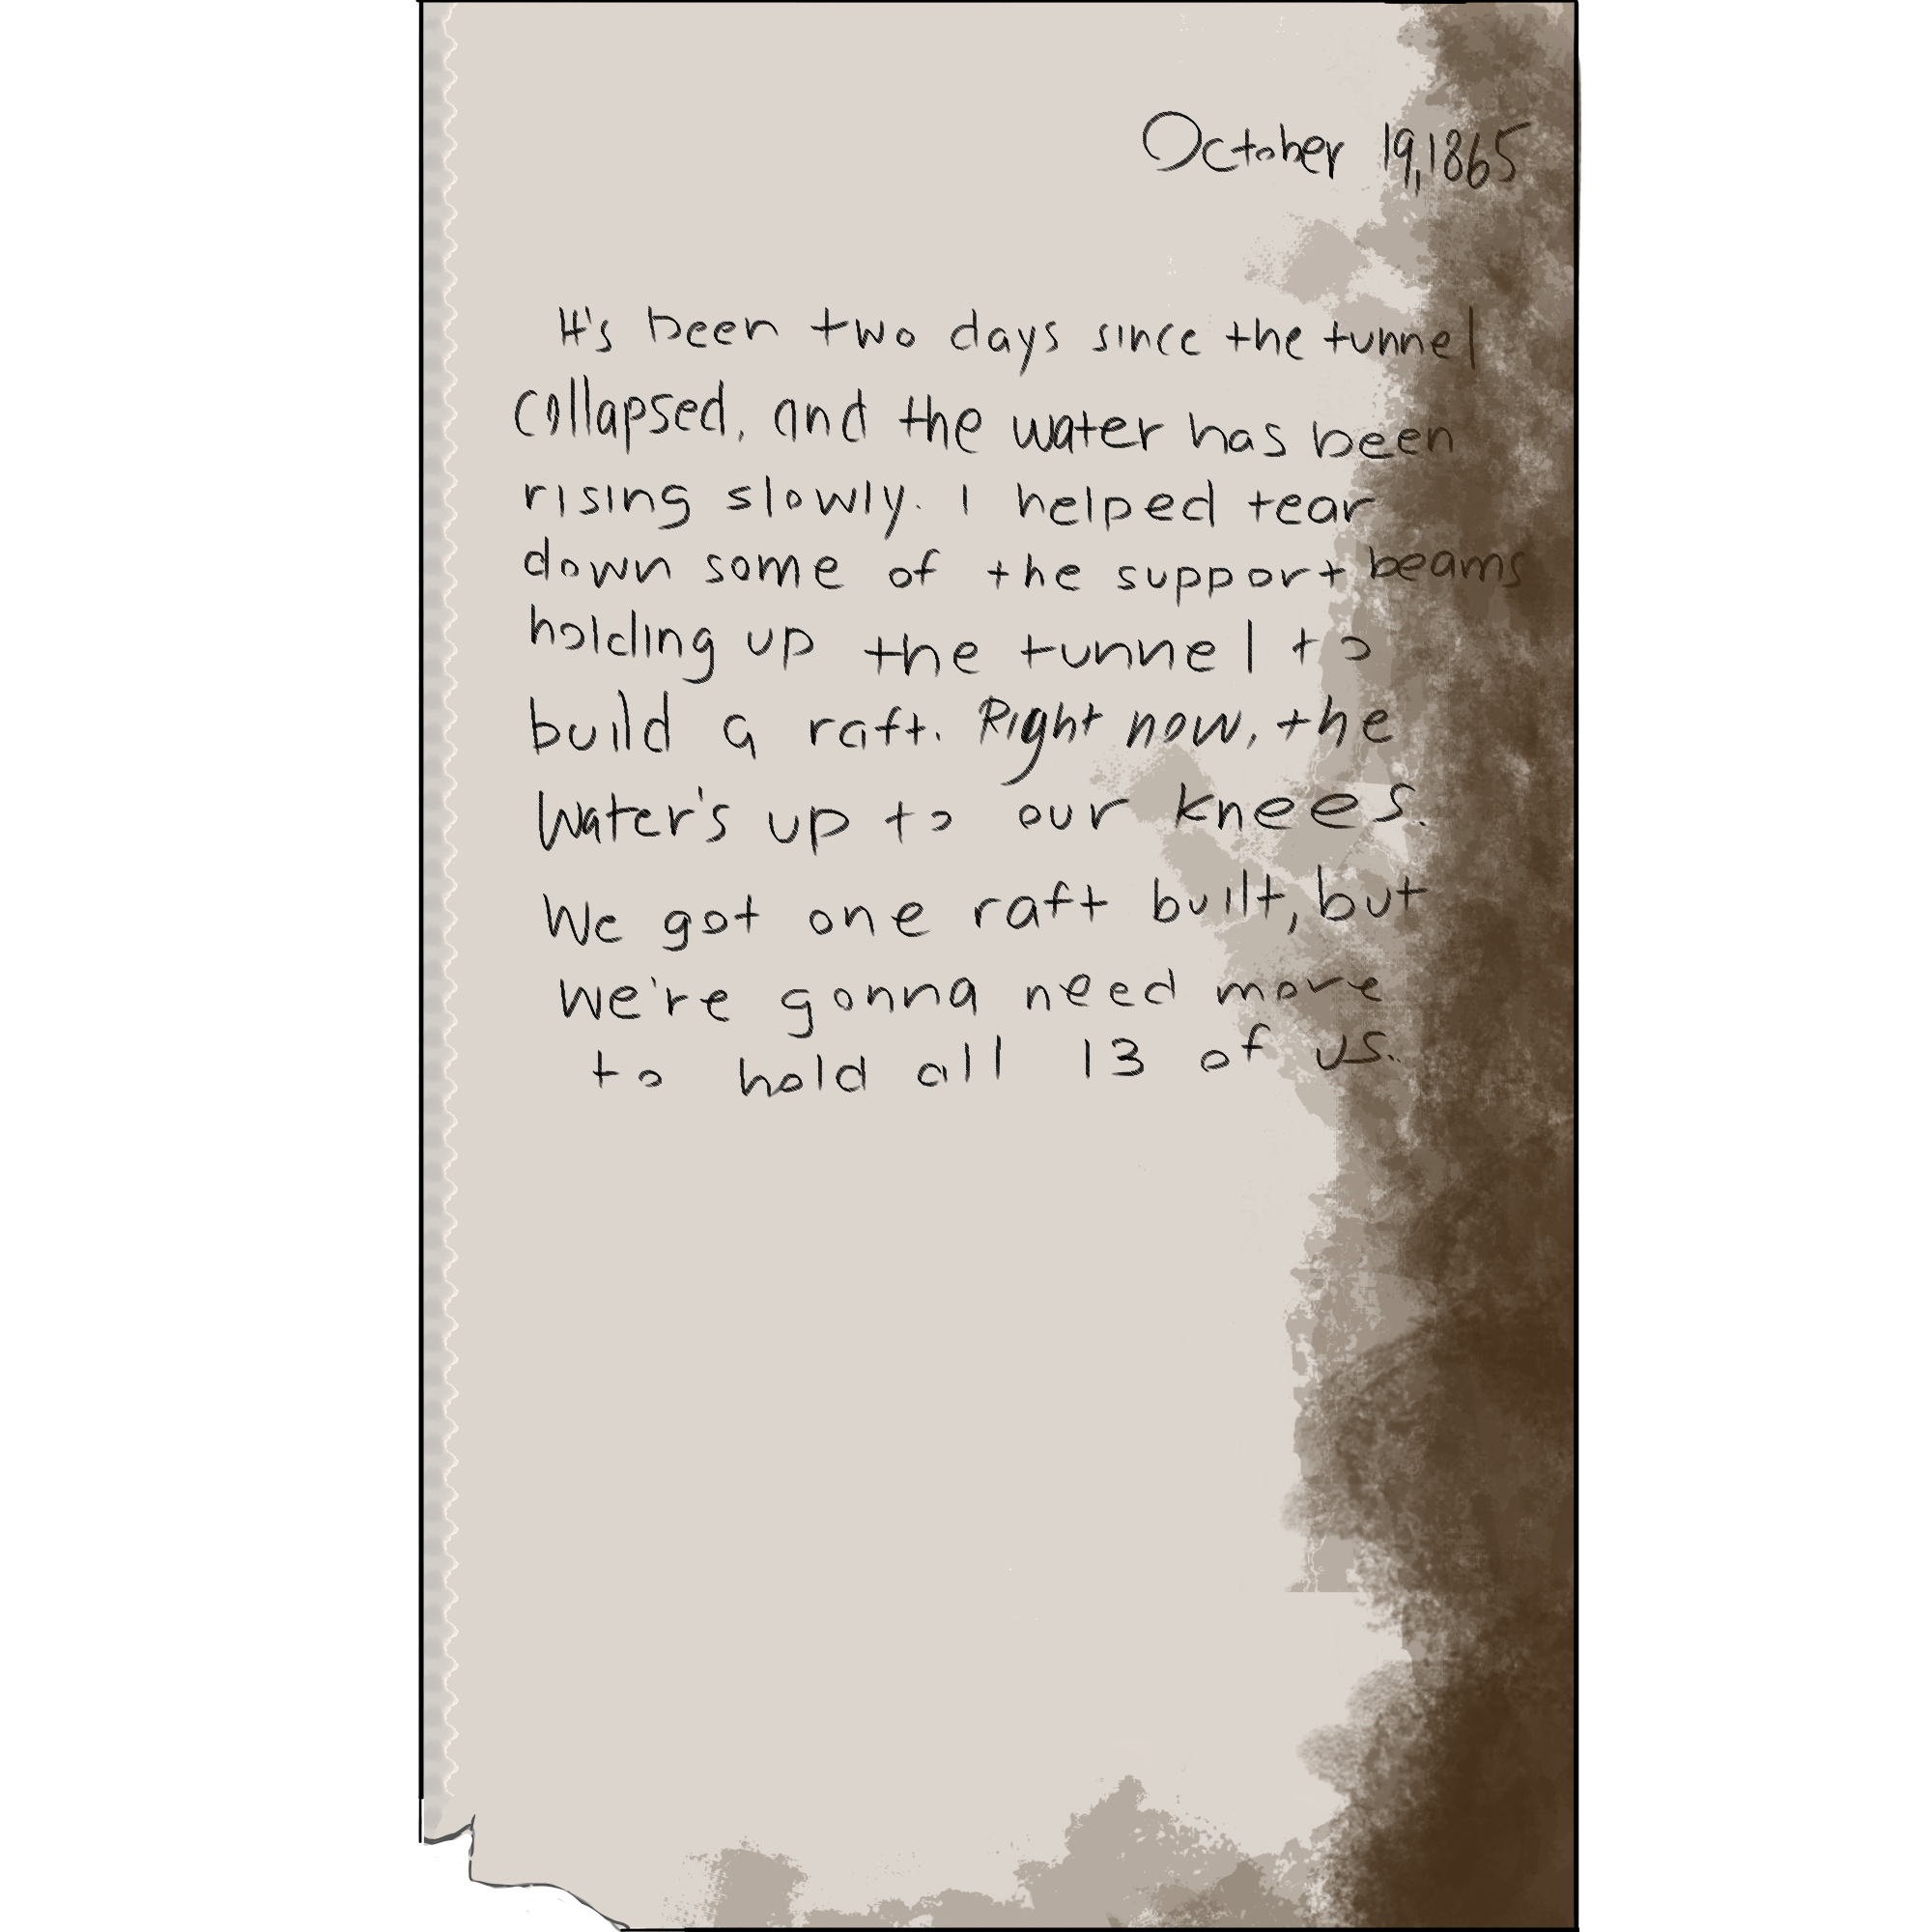 October 19, 1865
It's been two days since the tunnel
collapsed, and the water has been
rising slowly. I helped tear
down some of the support beams
holding up the tunnel to
build a raft. Right now, the
water's up to our knees.
We got one raft built, but
we're gonna need more
to hold all 13 of us..